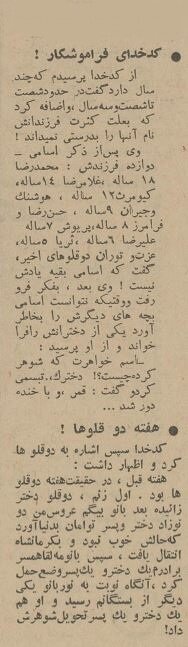 ● کدخدای فراموشکار !
از کدخدا پرسیدم که‌چند
سال دارد گفت‌در حدود‌شصت
تا‌شصت‌و‌سه‌سال ، واضافه کرد
که بعلت کثرت فرزندانش
نام آنها را بدرستی نمیداند !
وی پس‌از ذکر اسامی ــ
دوازده فرزندش : محمدرضا
۱۸ ساله ،غلامرضا ۱۴ساله،
کیومرث۱۲ ساله ، هوشنگ
وجیران ۹ساله ، حسن‌رضا و
فرامرز ۸ساله، پریوش ۷ساله
علیرضا ۶ساله ،ثریا ۵ساله،
عزت‌و توران دوقلوهای اخیر،
گفت که اسامی بقیه یادش
نیست ! وی بعد ، بفکر فرو
رفت ووقتیکه نتوانست اسامی
بچه های دیگرش را بخاطر
آورد یکی از دخترانش رافرا
خواند و از او پرسید :
ــاسم خواهرت که شوهر
کرده‌چیست؟! دخترک،تبسمی
کردو گفت : قمر ،و با خنده
دور شد ...
● هفته دو قلوها !
کدخدا سپس اشاره به دوقلو ها
کرد و اظهار داشت :
هفته قبل ، در حقیقت‌هفته دوقلو
ها بود . اول زنم ، دوقلو دختر
زائیده بعد بانو بیگم عروس‌من دو
نوزاد دختر وپسر توامان بدنیاآورد
که‌حالش خوب نبود و بکرمانشاه
انتقال یافت ، سپس بانومه‌لقاهمسر
برادرم‌یک دخترو یک‌پسروضع‌حمل
کرد ،آنگاه نوبت به نوربانو یکی
دیگر از بستگانم رسید و او هم
یک دخترو یک پسرتحویل‌شوهرش
داد!